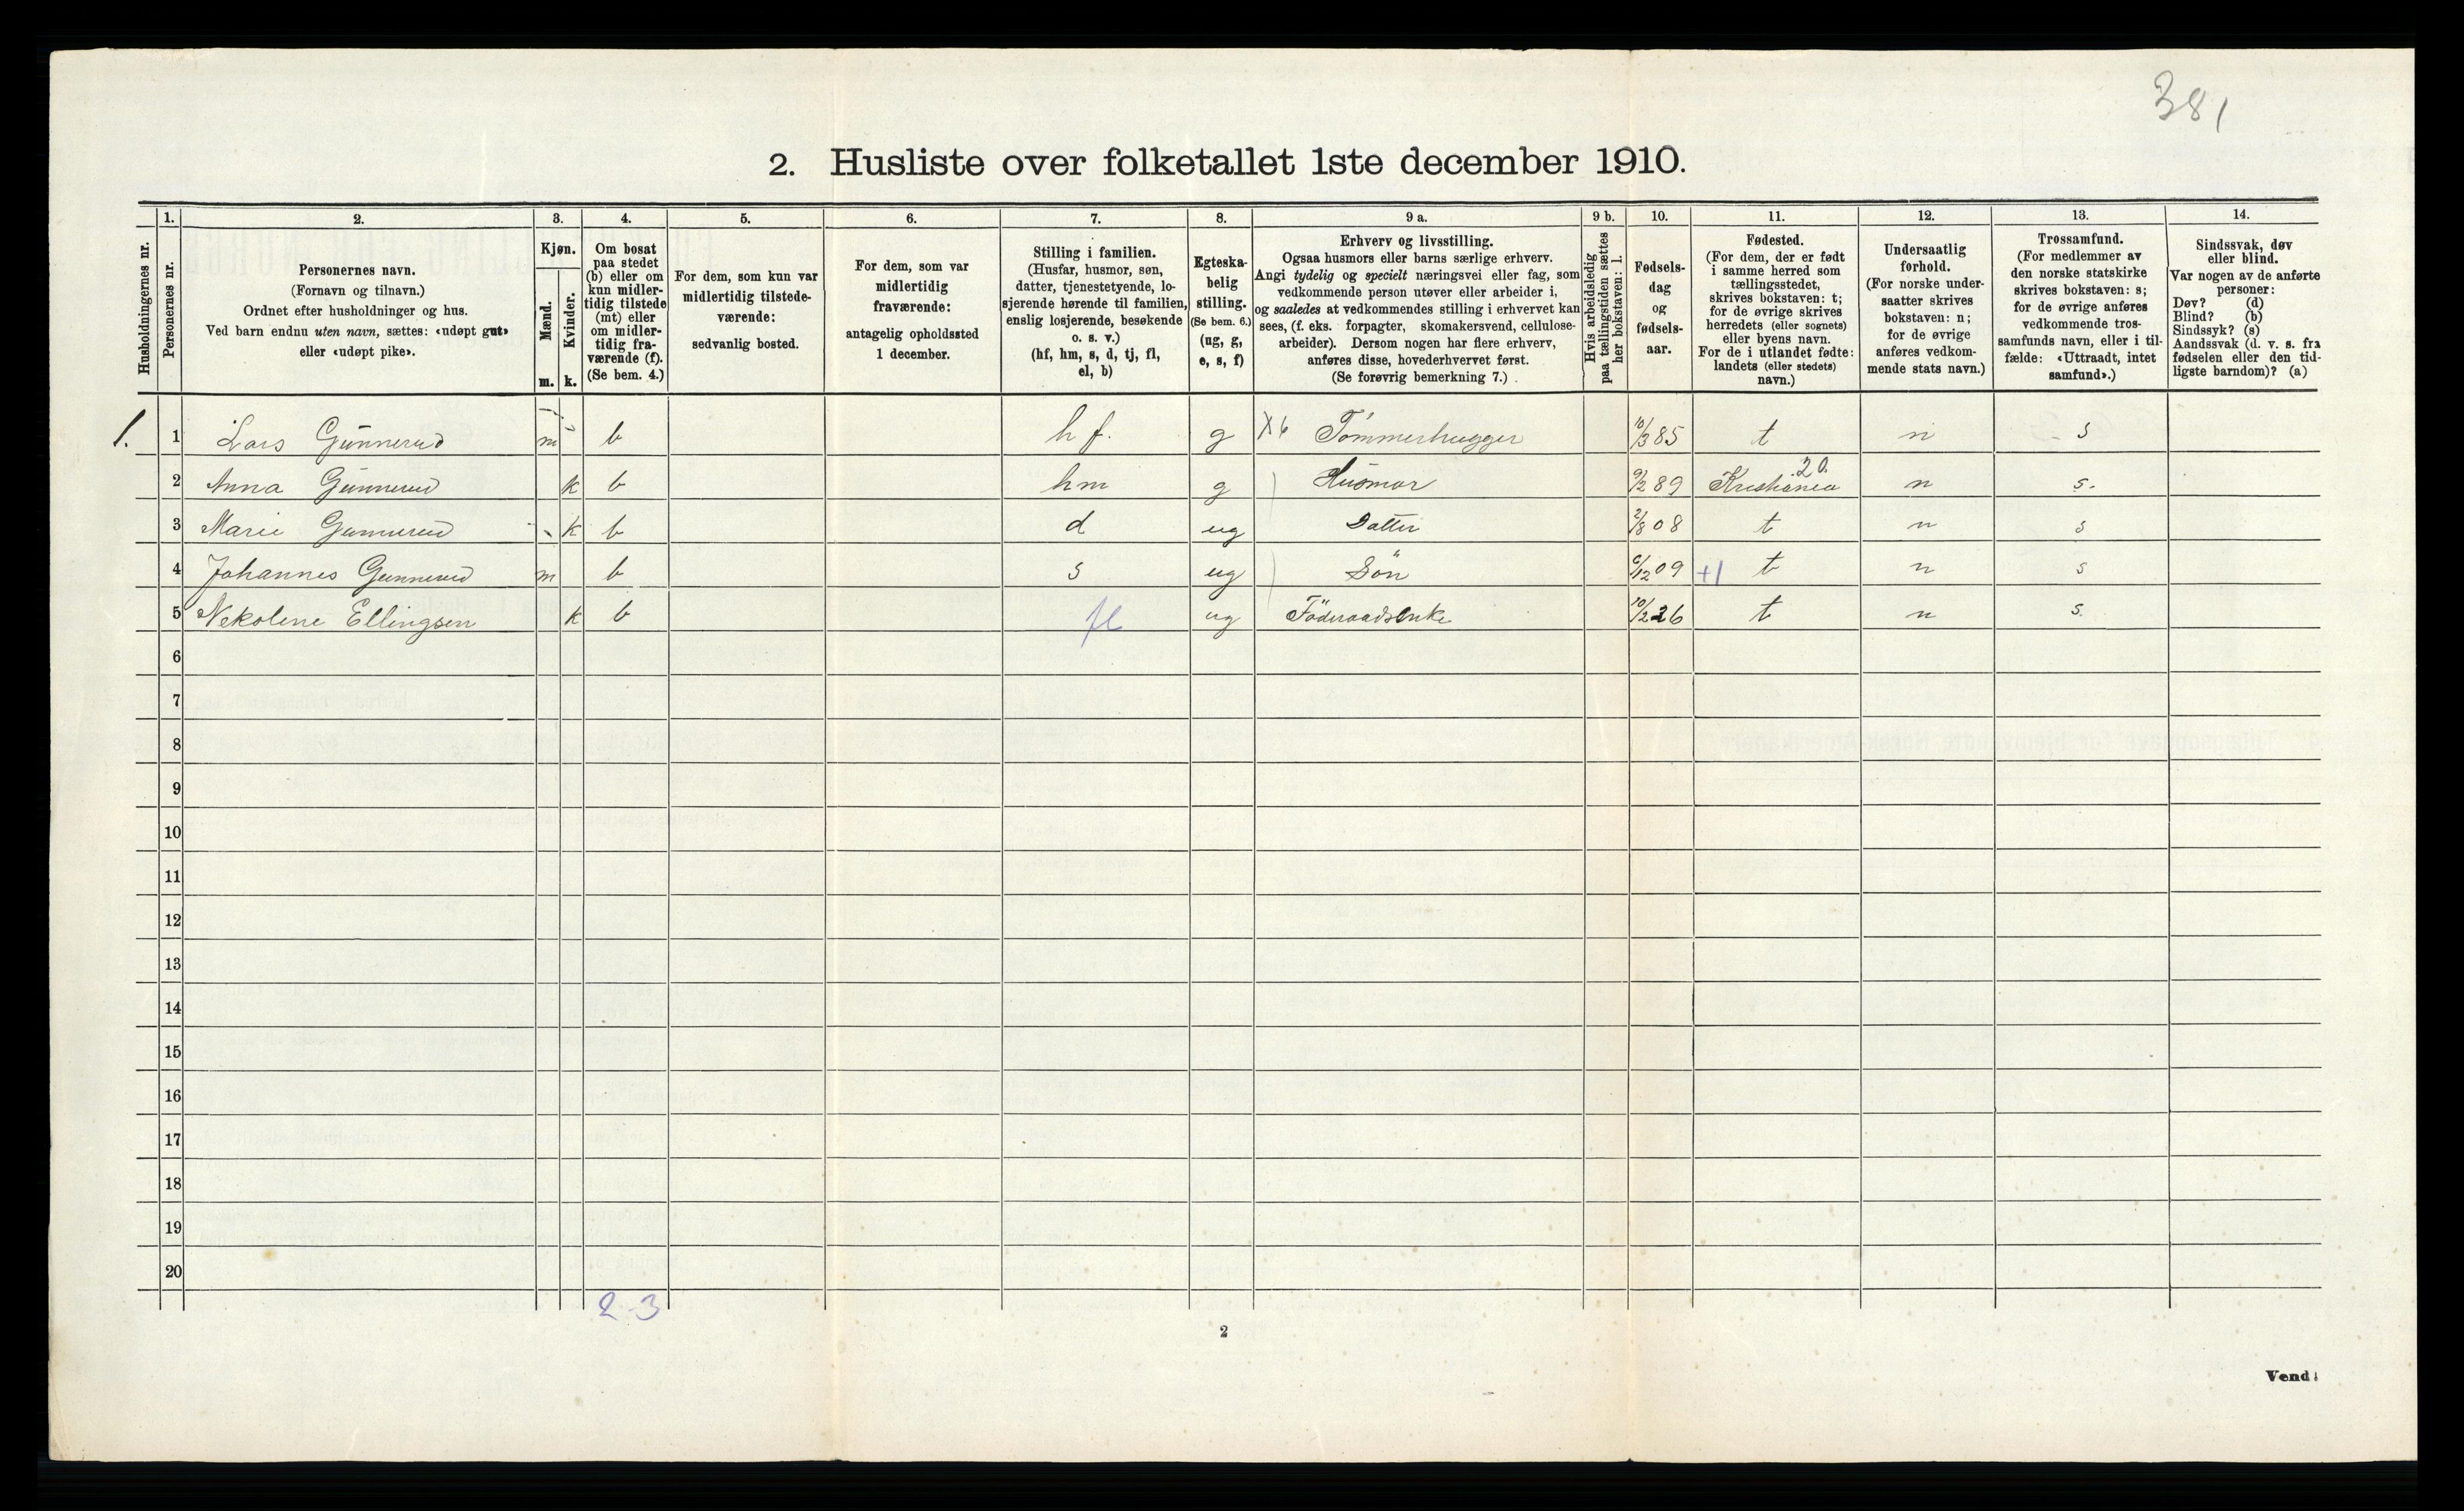 381
2. Husliste over folketallet 1ste december 1910.
Husholdningernes nr.
1.
Personernes nr.
2.
Personernes navn.
(Fornavn og tilnavn.)
Ordnet efter husholdninger og hus.
Ved barn endnu uten navn, sættes: «udøpt gut»
eller «udøpt pike».
3.
Kjøn.
Mænd.
m.
Kvinder.
k.
4.
Om bosat
paa stedet
(b) eller om
kun midler-
tidig tilstede
(mt) eller
om midler-
tidig fra-
værende (f).
(Se bem. 4.)
5.
For dem, som kun var
midlertidig tilstede-
værende:
sedvanlig bosted.
6.
For dem, som var
midlertidig
fraværende:
antagelig opholdssted
1 december.
7.
Stilling i familien.
(Husfar, husmor, søn,
datter, tjenestetyende, lo-
sjerende hørende til familien,
enslig losjerende, besøkende
o. s. v.)
(hf, hm, s, d, tj, fl,
el, b)
8.
Egteska-
belig
stilling.
(Se bem. 6.)
(ug, g,
e, s, f)
9 a.
Erhverv og livsstilling.
Ogsaa husmors eller barns særlige erhverv.
Angi tydelig og specielt næringsvei eller fag, som
vedkommende person utøver eller arbeider i,
og saaledes at vedkommendes stilling i erhvervet kan
sees, (f. eks. forpagter, skomakersvend, cellulose-
arbeider). Dersom nogen har flere erhverv,
anføres disse, hovederhvervet først.
(Se forøvrig bemerkning 7.)
9 b.
Hvis arbeidsledig
paa tællingstiden sættes
her bokstaven: l.
10.
Fødsels-
dag
og
fødsels-
aar.
11.
Fødested.
(For dem, der er født
i samme herred som
tællingsstedet,
skrives bokstaven: t;
for de øvrige skrives
herredets (eller sognets)
eller byens navn.
For de i utlandet fødte:
landets (eller stedets)
navn.)
12.
Undersaatlig
forhold.
(For norske under-
saatter skrives
bokstaven: n;
for de øvrige
anføres vedkom-
mende stats navn.)
13.
Trossamfund.
(For medlemmer av
den norske statskirke
skrives bokstaven: s;
for de øvrige anføres
vedkommende tros-
samfunds navn, eller i til-
fælde: «Uttraadt, intet
samfund».)
14.
Sindssvak, døv
eller blind.
Var nogen av de anførte
personer:
Døv? (d)
Blind? (b)
Sindssyk? (s)
Aandssvak (d. v. s. fra
fødselen eller den tid-
ligste barndom)? (a)
1. 1 Lars Gunnerud m b hf. g X6 Tömmerhugger 10/3 85 t n s
2 Anna Gunnerud k b hm g Husmor 9/2 89 Kristiania 20. n s.
3 Marie Gunnerud k b d ug Datter 2/8 08 t n s
4 Johannes Gunnerud m b s ug Sön 6/12 09 +1 t n s
5 Nekoline Ellingsen k b fl ug Föderaadsenke 10/2 26 t n s.
6
7
8
9
10
11
12
13
14
15
16
17
18
19
20
2-3
2
Vend!